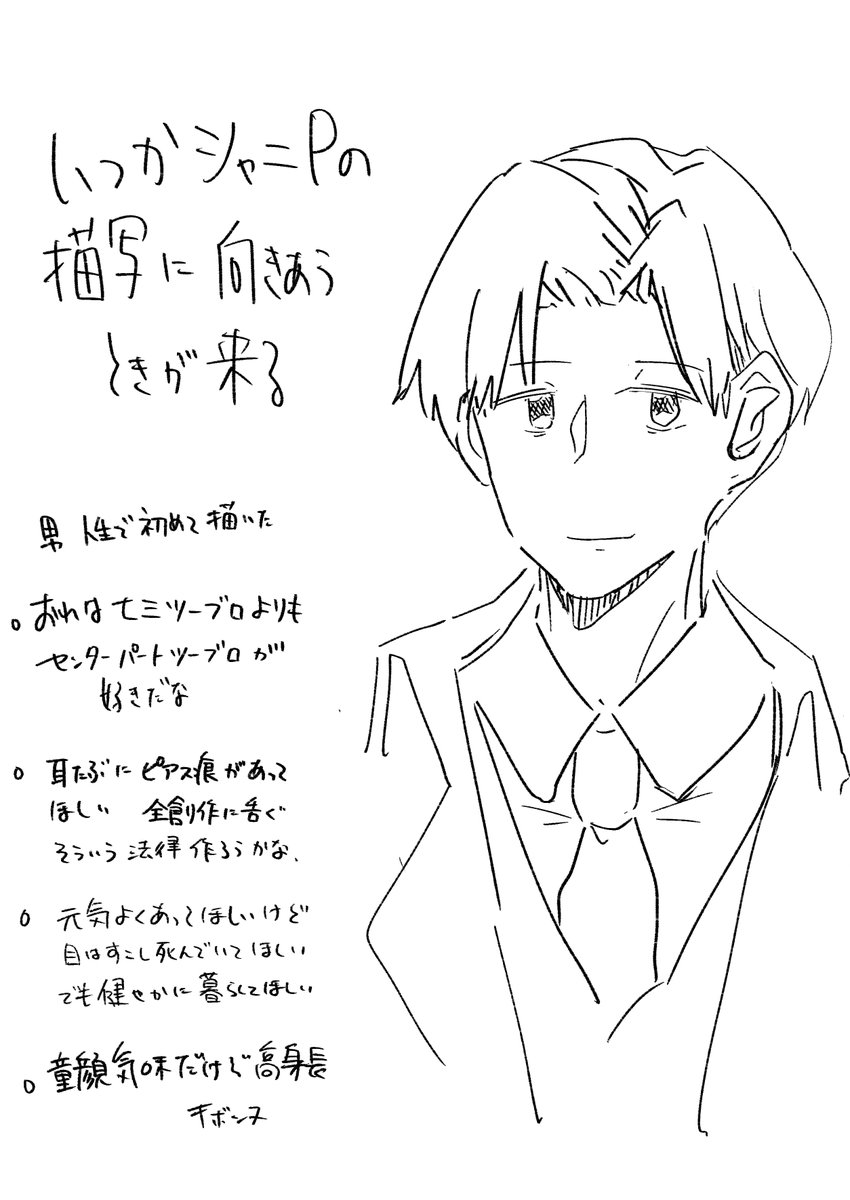 いつかシャニPの
描写に向きあう
ときが来る
男 人生で初めて描いた
おれは七三ツーブロよりも
センターパートツーブロが
好きだな
耳たぶにピアス痕があって
ほしい 全創作に告ぐ
そういう法律作ろうかな、
元気よくあってほしいけど
目はすこし死んでいてほしい
でも健やかに暮らしてほしい
童顔気味だけど高身長
キボンヌ